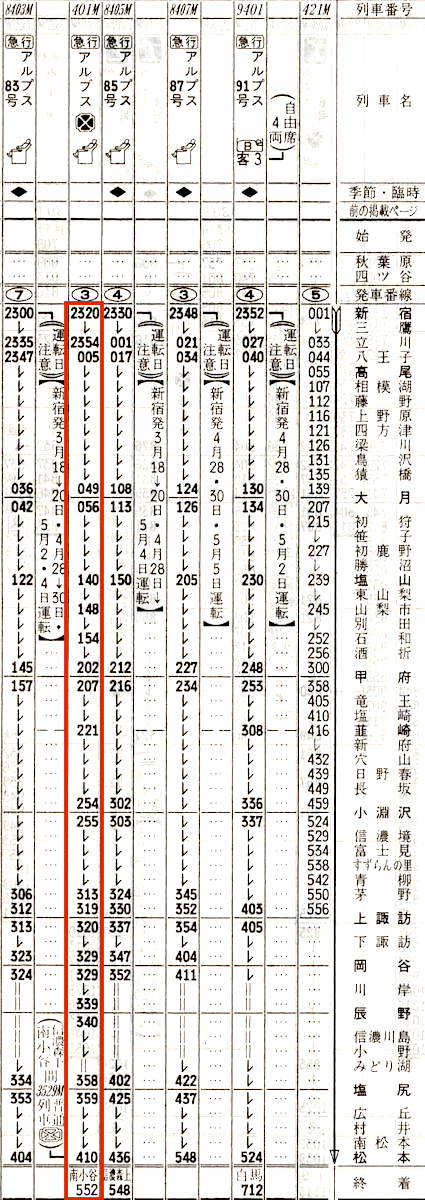 8403M 401M 8405M 8407M 9401 421M 列車番号
急行 急行 急行 急行 急行
アルプス83号 アルプス アルプス85号 アルプス87号 アルプス91号 列車名
自由席4両
B 客3
◆ ◆ ◆ ◆ 季節・臨時
前の掲載ページ
始発
… … … … … … 秋葉原
… … … … … … 四ツ谷
⑦ ③ ④ ③ ④ ⑤ 発車番線
2300 2320 2330 2348 2352 001 新宿
レ レ レ レ レ レ 三鷹
2335 2354 001 021 027 033 立川
2347 005 017 034 040 044 八王子
レ レ レ レ レ 055 高尾
レ レ レ レ レ 107 相模湖
レ レ レ レ レ 112 藤野
レ レ レ レ レ 116 上野原
レ レ レ レ レ 121 四方津
レ レ レ レ レ 126 梁川
レ レ レ レ レ 131 鳥沢
レ レ レ レ レ 135 猿橋
036 049 108 124 130 139 大月
042 056 113 126 134 207
レ レ レ レ レ 215 初狩
レ レ レ レ レ レ 笹子
レ レ レ レ レ 227 初鹿野
レ レ レ レ レ レ 勝沼
122 140 150 205 230 239 塩山
レ レ レ レ レ レ 東山梨
レ 148 レ レ レ 245 山梨市
レ レ レ レ レ レ 別田
レ 154 レ レ レ 252 石和
レ レ レ レ レ 256 酒折
145 202 212 227 248 300 甲府
157 207 216 234 253 358
レ レ レ レ レ 405 竜王
レ レ レ レ レ 410 塩崎
レ 221 レ レ 308 416 韮崎
レ レ レ レ レ レ 新府
レ レ レ レ レ 432 穴山
レ レ レ レ レ 439 日野春
レ レ レ レ レ 449 長坂
レ 254 302 レ 336 459 小淵沢
レ 255 303 レ 337 524
レ レ レ レ レ 529 信濃境
レ レ レ レ レ 534 富士見
レ レ レ レ レ 538 すずらんの里
レ レ レ レ レ 542 青柳
306 313 324 345 レ 550 茅野
312 319 330 352 403 556 上諏訪
313 320 337 354 405 …
レ レ レ レ レ … 下諏訪
323 329 347 404 レ … 岡谷
324 329 352 411 レ …
‖ レ ‖ ‖ … 川岸
‖ 339 ‖ ‖ … 辰野
‖ 340 ‖ ‖ …
‖ レ ‖ ‖ … 信濃川島
‖ レ ‖ ‖ … 小野
レ ‖ レ レ … みどり湖
334 358 402 422 レ … 塩尻
353 359 425 437 レ …
レ レ レ レ レ … 広丘
レ レ レ レ レ … 村井
レ レ レ レ レ … 南松本
404 410 436 548 524 … 松本
南小谷 信濃森上 白馬 終着
552 548 712
運転日注意
【新宿発3月18→20日・4月28→30日・5月2・4日運転】
運転日注意
【新宿発3月18→20日・4月28→30日・5月2・4日運転】
運転日注意
【新宿発4月28・30日・5月5日運転】
運転日注意
【新宿発4月28・30日・5月2日運転】
信濃森上―南小谷間
3529M
普通列車